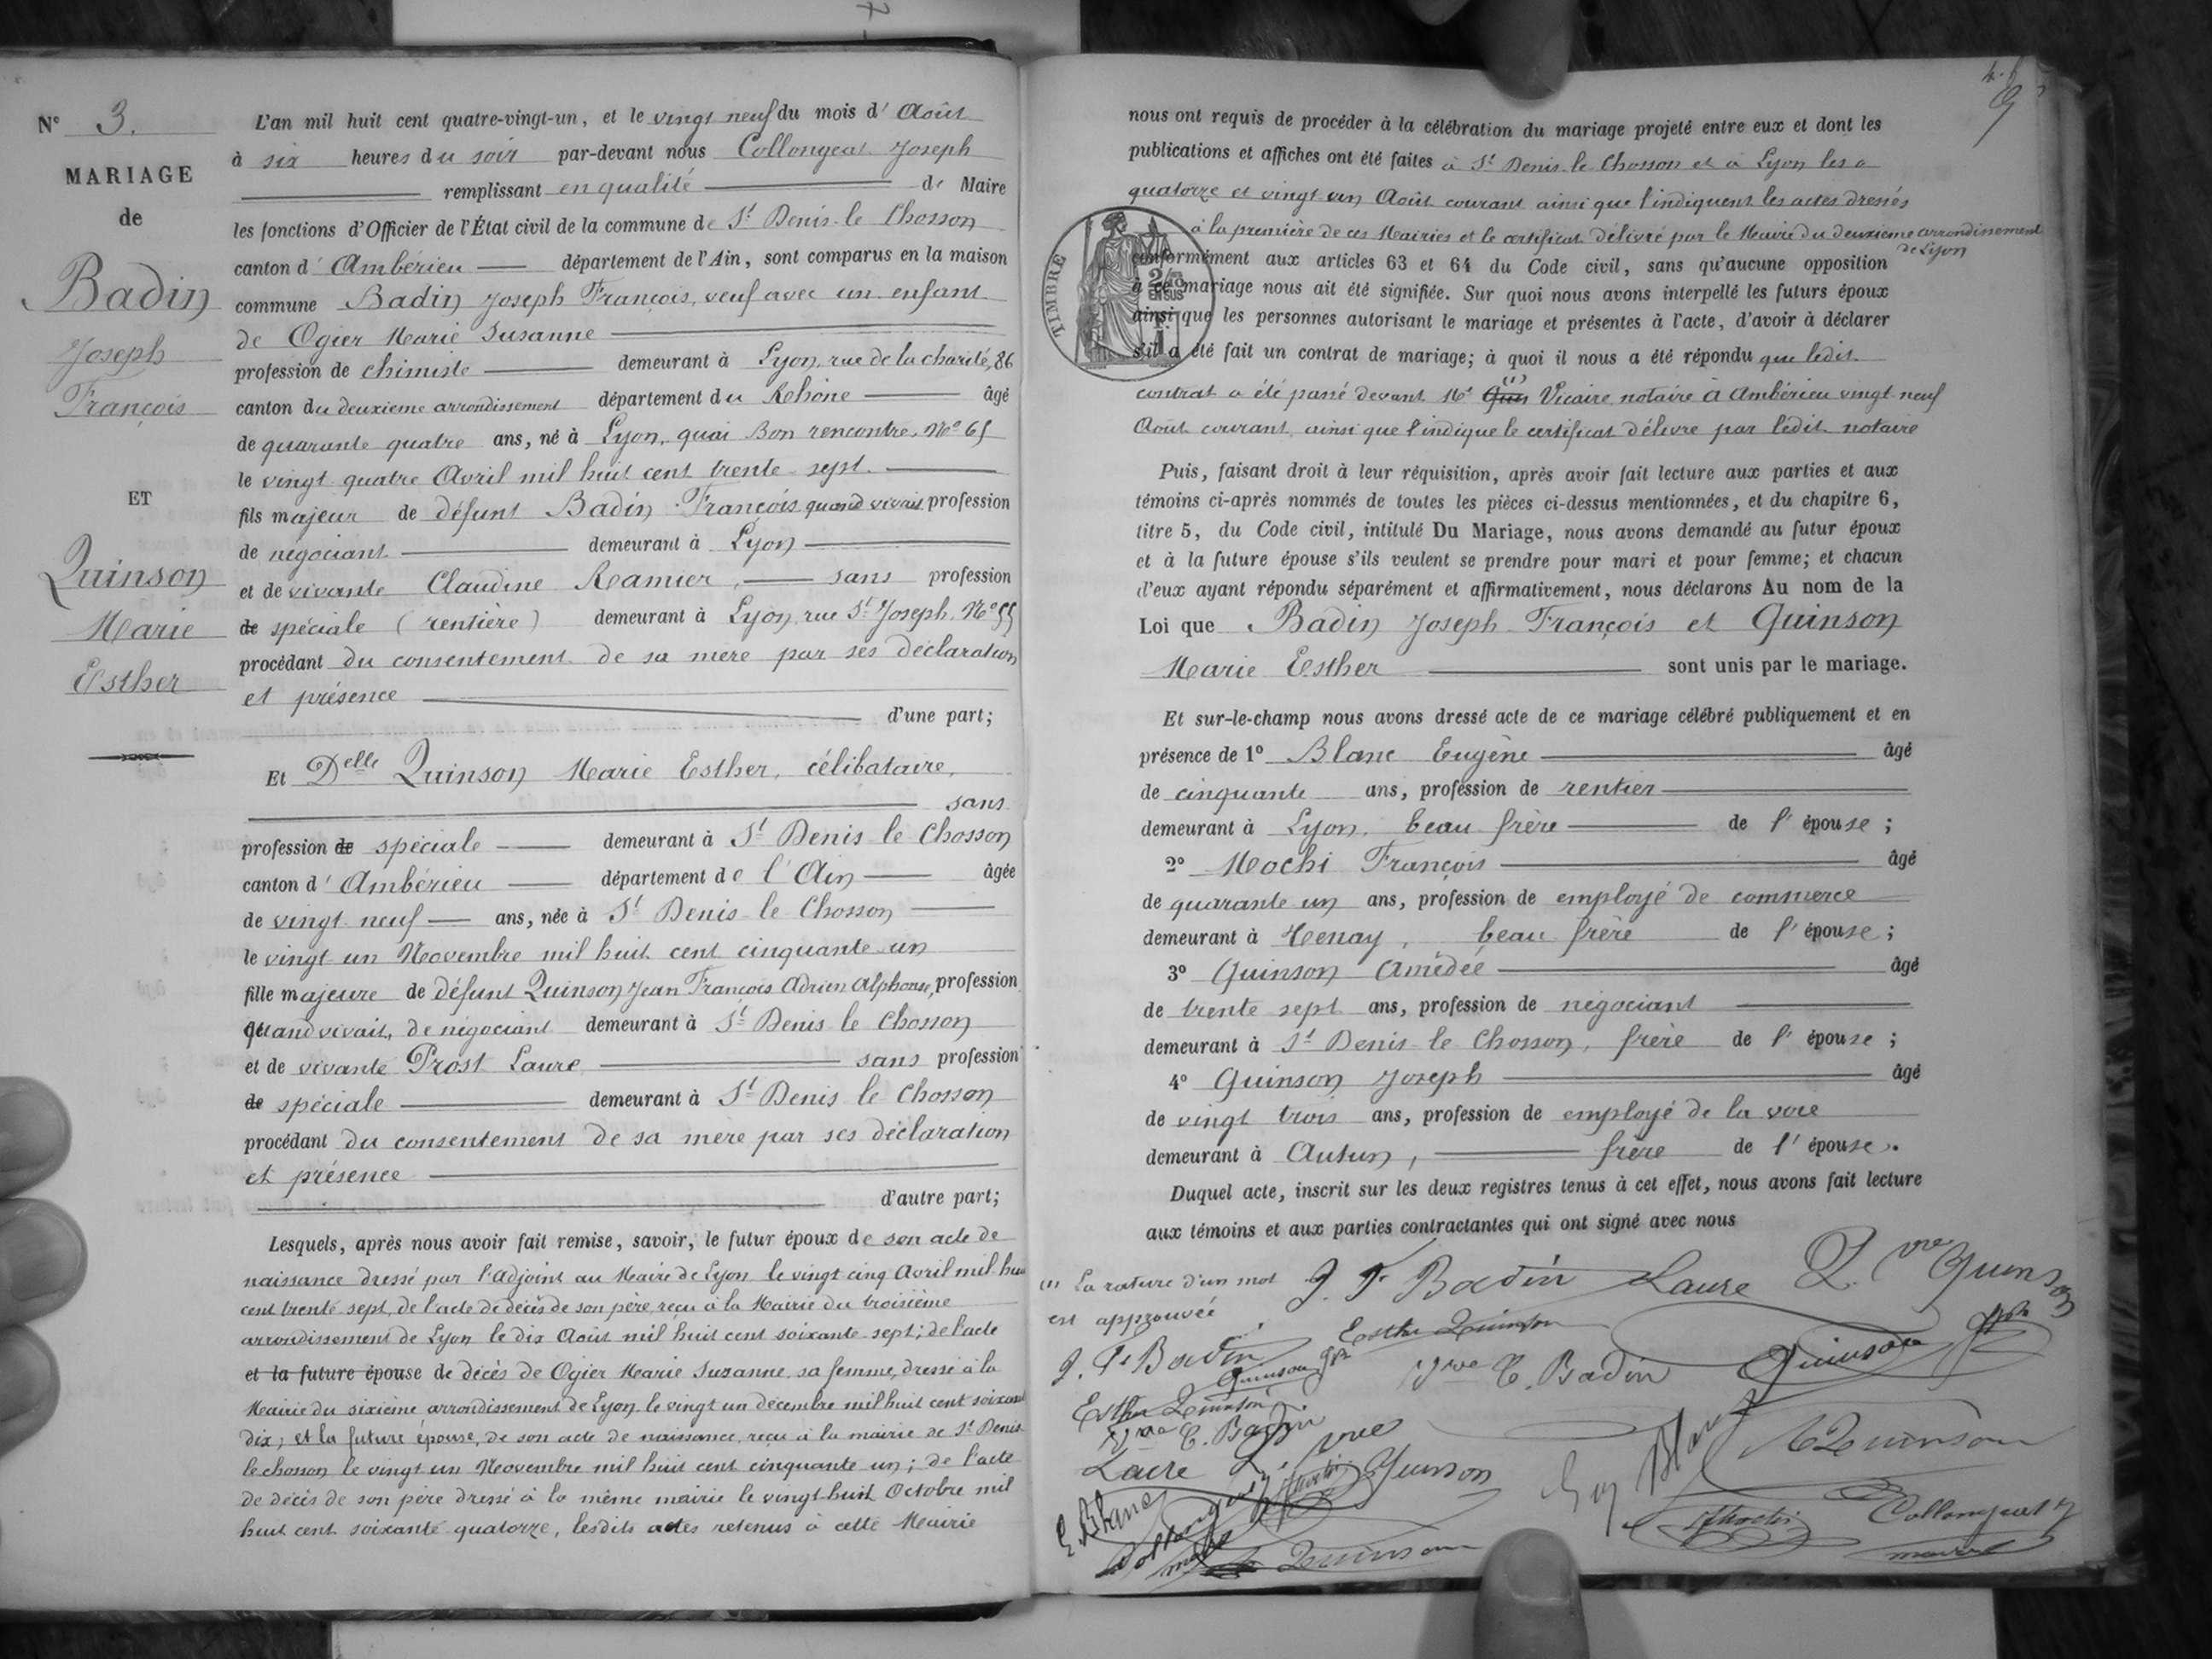 N° 3.
MARIAGE
de
Badin
Joseph
François
ET
Quinson
Marie
Esther
L'an mil huit cent quatre-vingt-un, et le vingt neuf du mois d' Août
à six heures du soir par-devant nous Collongeat Joseph
remplissant en qualité de Maire
les fonctions d'Officier de l'État civil de la commune de St Denis-le Chosson
canton d' Ambérieu département de l'Ain, sont comparus en la maison
commune Badin Joseph François, veuf avec un enfant
de Ogier Marie Susanne
profession de chimiste demeurant à Lyon, rue de la charité, 86
canton du deuxieme arrondissement département du Rehône âgé
de quarante quatre ans, né à Lyon, quai Bon rencontre, No 65
le vingt quatre Avril mil huit cent trente-sept.
fils majeur de défunt Badin François quand vivait profession
de négociant demeurant à Lyon
et de vivante Claudine Ramier, sans profession
de spéciale (rentière) demeurant à Lyon, rue St Joseph, No 55
procédant du consentement de sa mère par ses déclaration
et présence
d'une part;
Et Delle Quinson Marie Esther, célibataire,
sans
profession de spéciale demeurant à St Denis le Chosson
canton d' Ambérieu département de l'Ain âgée
de vingt neuf ans, née à St Denis-le Chosson
le vingt un Novembre mil huit cent cinquante-un
fille majeure de défunt Quinson Jean François Adrien Alphonse, profession
quand vivait, de négociant demeurant à St Denis le Chosson
et de vivante Prost Laure sans profession
de spéciale demeurant à St Denis le Chosson
procédant du consentement de sa mère par ses déclaration
et présence
d'autre part;
Lesquels, après nous avoir fait remise, savoir, le futur époux de son acte de
naissance dressé par l'Adjoint au Maire de Lyon le vingt cinq Avril mil huit
cent trente sept, de l'acte de décès de son père, reçu à la Mairie du troisième
arrondissement de Lyon le dix Août mil huit cent soixante-sept; de l'acte
et la future épouse de décès de Ogier Marie Suzanne, sa femme, dressé à la
Mairie du sixième arrondissement de Lyon le vingt un décembre mil huit cent soixante
dix; et la future épouse, de son acte de naissance, reçu à la mairie de St Denis-
le chosson le vingt un Novembre mil huit cent cinquante un; de l'acte
de décès de son père dressé à la même mairie le vingt-huit Octobre mil
huit cent soixante quatorze, lesdits actes retenus à cette Mairie
nous ont requis de procéder à la célébration du mariage projeté entre eux et dont les
publications et affiches ont été faites à St Denis-le Chosson et à Lyon les
quatorze et vingt un Août courant ainsi que l'indiquent les actes dressés
à la première de ces Mairies et le certificat délivré par le Maire du deuxieme arrondissement
de Lyon
conformément aux articles 63 et 64 du Code civil, sans qu'aucune opposition
à ce mariage nous ait été signifiée. Sur quoi nous avons interpellé les futurs époux
ainsi que les personnes autorisant le mariage et présentes à l'acte, d'avoir à déclarer
s'il a été fait un contrat de mariage; à quoi il nous a été répondu que ledit
TIMBRE
2/10
EN SUS
contrat a été passé devant Me (1) Vicaire notaire à Ambérieu vingt-neuf
Août courant, ainsi que l'indique le certificat délivré par ledit notaire
Puis, faisant droit à leur réquisition, après avoir fait lecture aux parties et aux
témoins ci-après nommés de toutes les pièces ci-dessus mentionnées, et du chapitre 6,
titre 5, du Code civil, intitulé Du Mariage, nous avons demandé au futur époux
et à la future épouse s'ils veulent se prendre pour mari et pour femme; et chacun
d'eux ayant répondu séparément et affirmativement, nous déclarons Au nom de la
Loi que Badin Joseph-François et Quinson
Marie Esther sont unis par le mariage.
Et sur-le-champ nous avons dressé acte de ce mariage célébré publiquement et en
présence de 1° Blanc Eugène âgé
de cinquante ans, profession de rentier
demeurant à Lyon, beau frère de l'épouse;
2° Mochi François âgé
de quarante un ans, profession de employé de commerce
demeurant à Tenay, beau frère de l'épouse;
3° Quinson Amédée âgé
de trente sept ans, profession de négociant
demeurant à St Denis-le Chosson, frère de l'épouse;
4° Quinson Joseph âgé
de vingt trois ans, profession de employé de la voie
demeurant à Autun, frère de l'épouse.
Duquel acte, inscrit sur les deux registres tenus à cet effet, nous avons fait lecture
aux témoins et aux parties contractantes qui ont signé avec nous
(1) La rature d'un mot
est approuvée
J. F. Badin Laure Q. vve Quinson
J. F. Badin Esther Quinson
Quinson Jph Vve C. Badin Quinson Jph
Esther Quinson
Vve C. Badin
Laure Q. vve Quinson
Eug Blanc A Quinson
E. Blanc Collongeat
maire
FMochi Collongeat J
maire
A Quinson